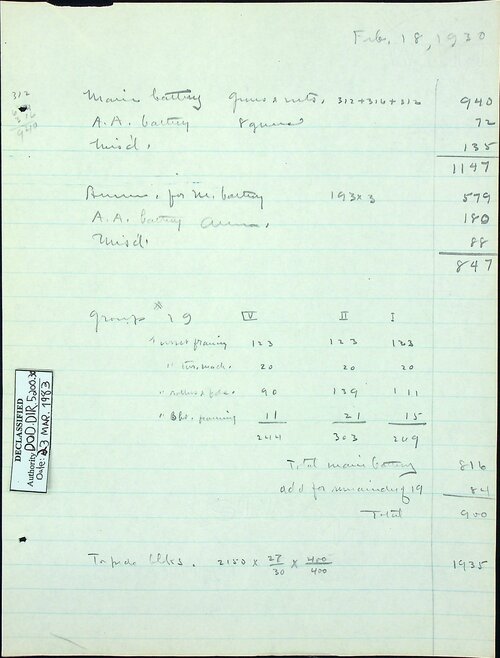 Feb. 18, 1930
312
316
940
Main battery guns & mts. 312+316+312 940
A.A. battery 8 guns 72
Misc'l. 135
1147
Ammun. for M. battery 193x3 579
A.A. battery Ammun. 180
Misc'l. 88
847
Group # 19 V II I
" turret framing 123 123 123
" Turr. mach. 20 20 20
" rollers & 90 139 111
" Bkt. framing 11 21 15
244 303 269
Total main battery 816
add for remainder of 19 84
Total 900
Torpedo blks. 2150 x 27/30 x 400/400 1935
DECLASSIFIED
Authority DOD.DIR.5200.30
Date: 23 MAR. 1983